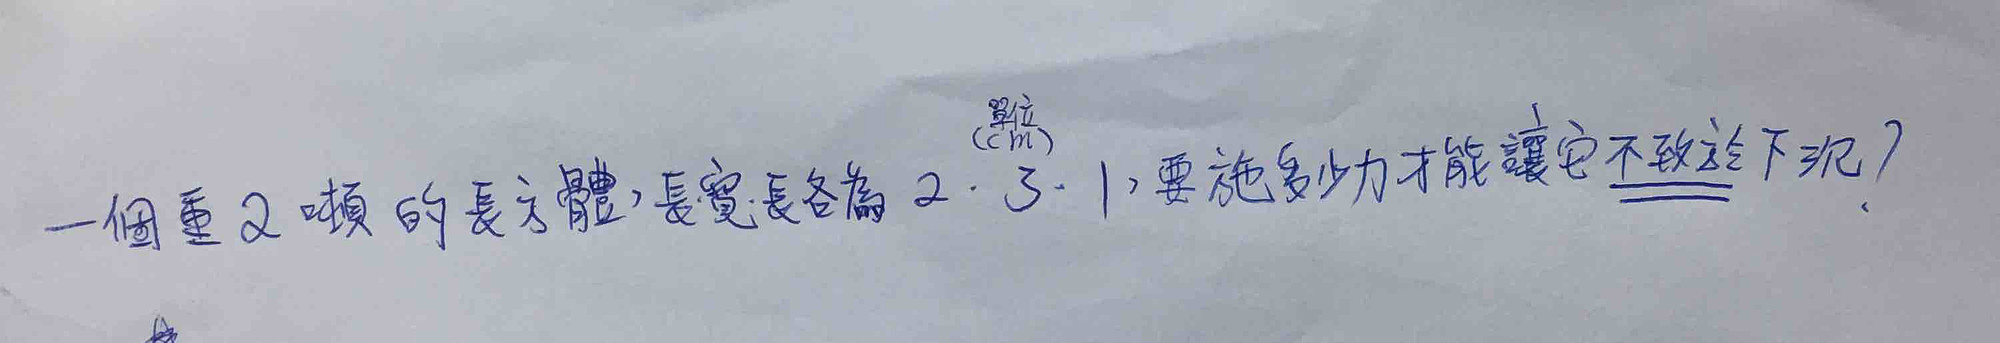 單位
(cm)
一個重2噸的長方體,長寬長各為 2.3.1,要施多少力才能讓它不致於下沉?